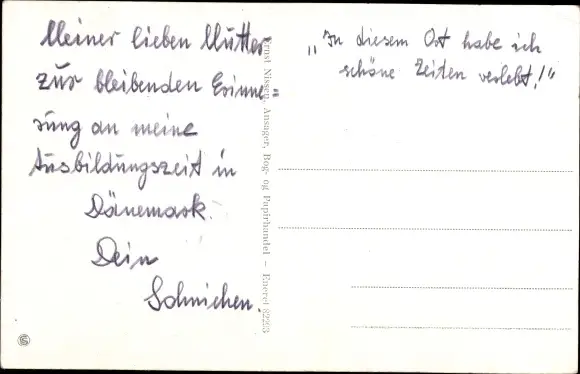 Meiner lieben Mutter
zur bleibenden Erinne=
rung an meine
Ausbildungszeit in
Dänemark.
Dein
Sohnichen.
"In diesem Ort habe ich
schöne Zeiten verlebt!"
Ernst Nissen, Ansager, Bog- og Papirhandel – Eneret 82293